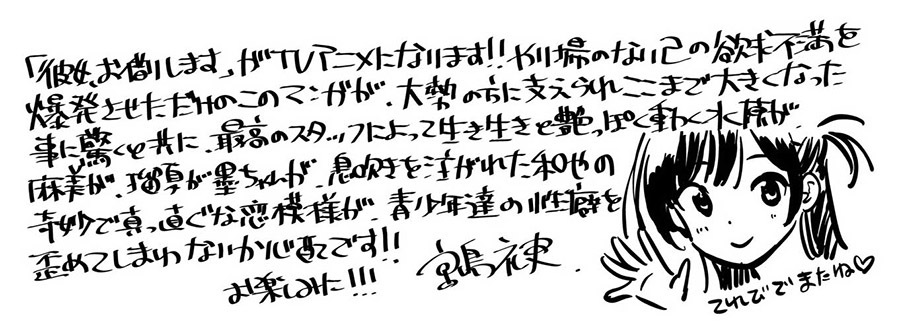 「彼女、お借りします」がTVアニメになります!!やり場のない己の欲求不満を
爆発させただけのこのマンガが、大勢の方に支えられここまで大きくなった
事に驚くと共に、最高のスタッフによって生き生きと艶っぽく動く水原が
麻美が、瑠夏が墨ちゃんが、息吹きを注がれた和也の
奇妙で真っ直ぐな恋模様が、青少年達の性癖を
歪めてしまわないか心配です!!
お楽しみに!!!
宮島礼吏.
てれびでまたね♡